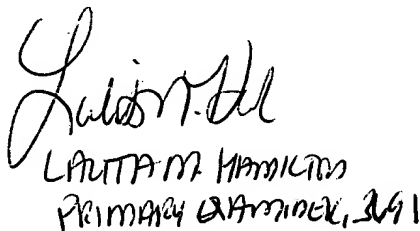 Lalita M. Hamilton
LALITA M. HAMILTON
PRIMARY EXAMINER, 3691